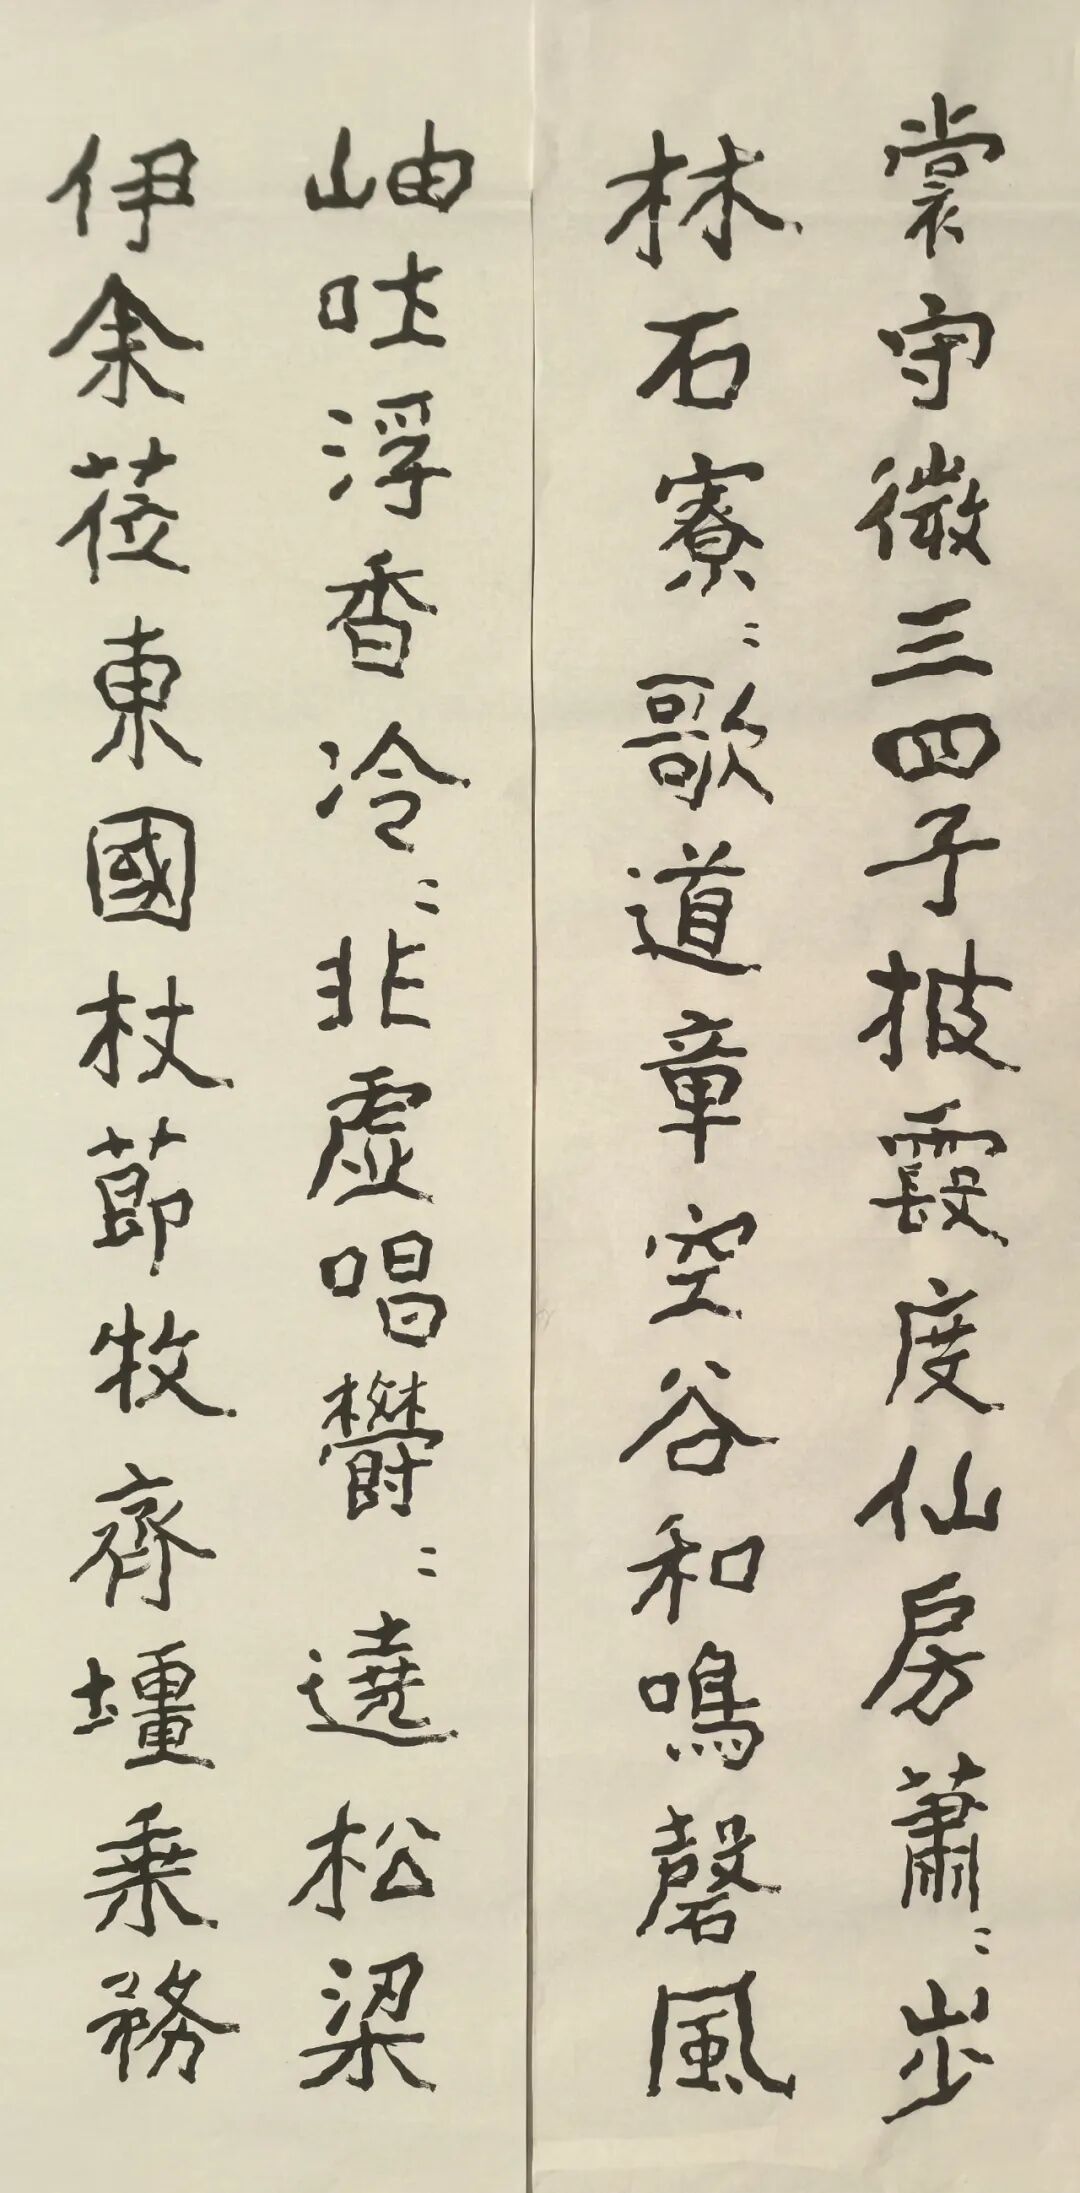 裳守微三四子披霞度仙房蕭〻步
林石寮〻歌道章空谷和鳴磬風
岫吐浮香冷〻非虚唱欝〻遶松梁
伊余莅東國杖莭牧齊壃乗務